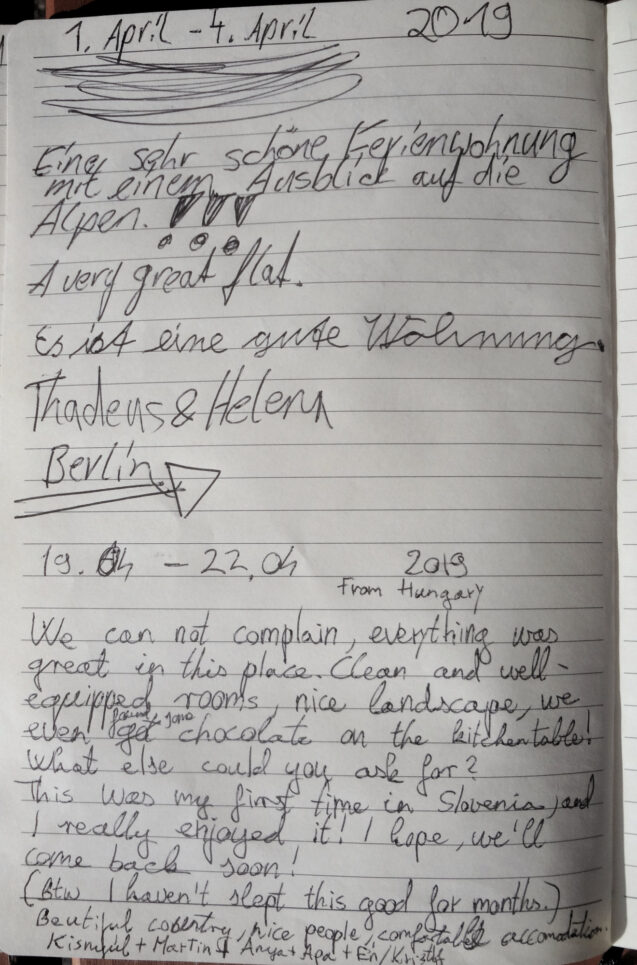 1. April - 4. April 2019
Eine sehr schöne Ferienwohnung
mit einem Ausblick auf die
Alpen.
A very great flat.
Es ist eine gute Wohnung.
Thadeus & Helena
Berlin
19. 04 - 22.04 2019
From Hungary
We can not complain, everything was
great in this place. Clean and well-
equipped rooms, nice landscape, we
found some
even chocolate on the kitchentable!
What else could you ask for?
This was my first time in Slovenia, and
I really enjoyed it! I hope, we'll
come back soon!
(Btw I haven't slept this good for months.)
Beautiful country, nice people, comfortable accomodation.
+ Martin + Anya + Apa + Én/Kristóf